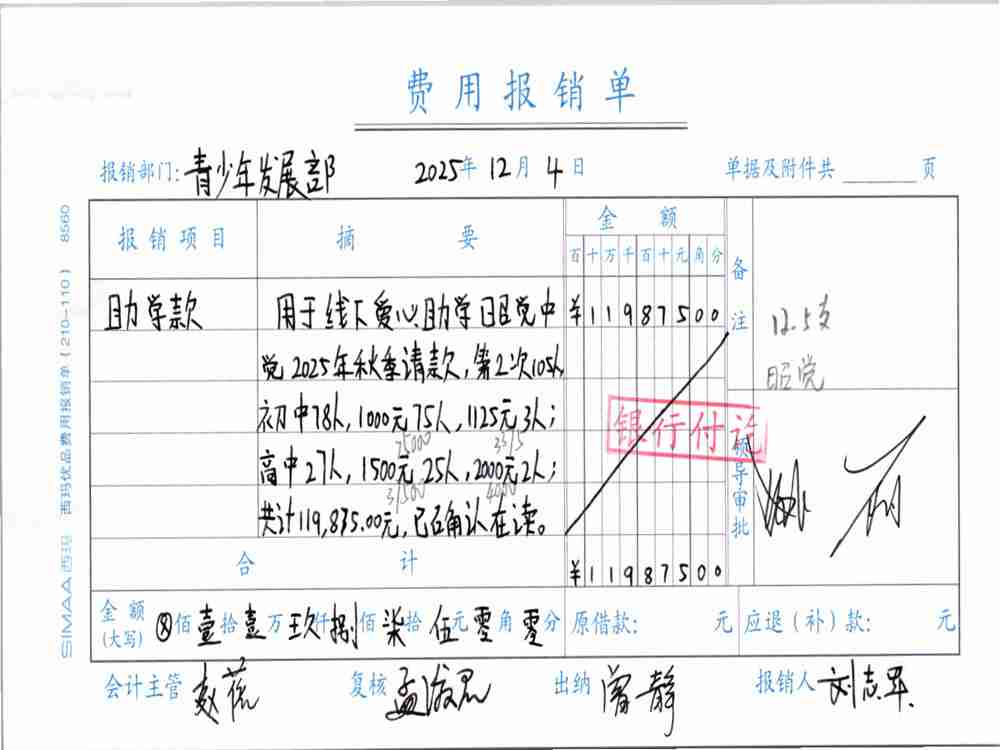 费用报销单
报销部门: 青少年发展部 2025年 12月 4日 单据及附件共 页
报销项目 摘要 金额 备注
百十万千百十元角分
助学款 用于线下爱心助学昭觉中 ¥11987500
12.5支
昭觉
觉2025年秋季请款,第2次105人
初中78人,1000元75人,1125元3人;
75000 3375
银行付讫
高中27人,1500元25人,2000元2人;
37500 4000
领导审批
共计119,875.00元,已确认在读。
合计 ¥11987500
金额(大写) ⊗佰壹拾壹万玖仟捌佰柒拾伍元零角零分 原借款: 元 应退(补)款: 元
会计主管 复核 出纳 曾静 报销人
SIMAA西玛 西玛优品费用报销单(210-110) 8560